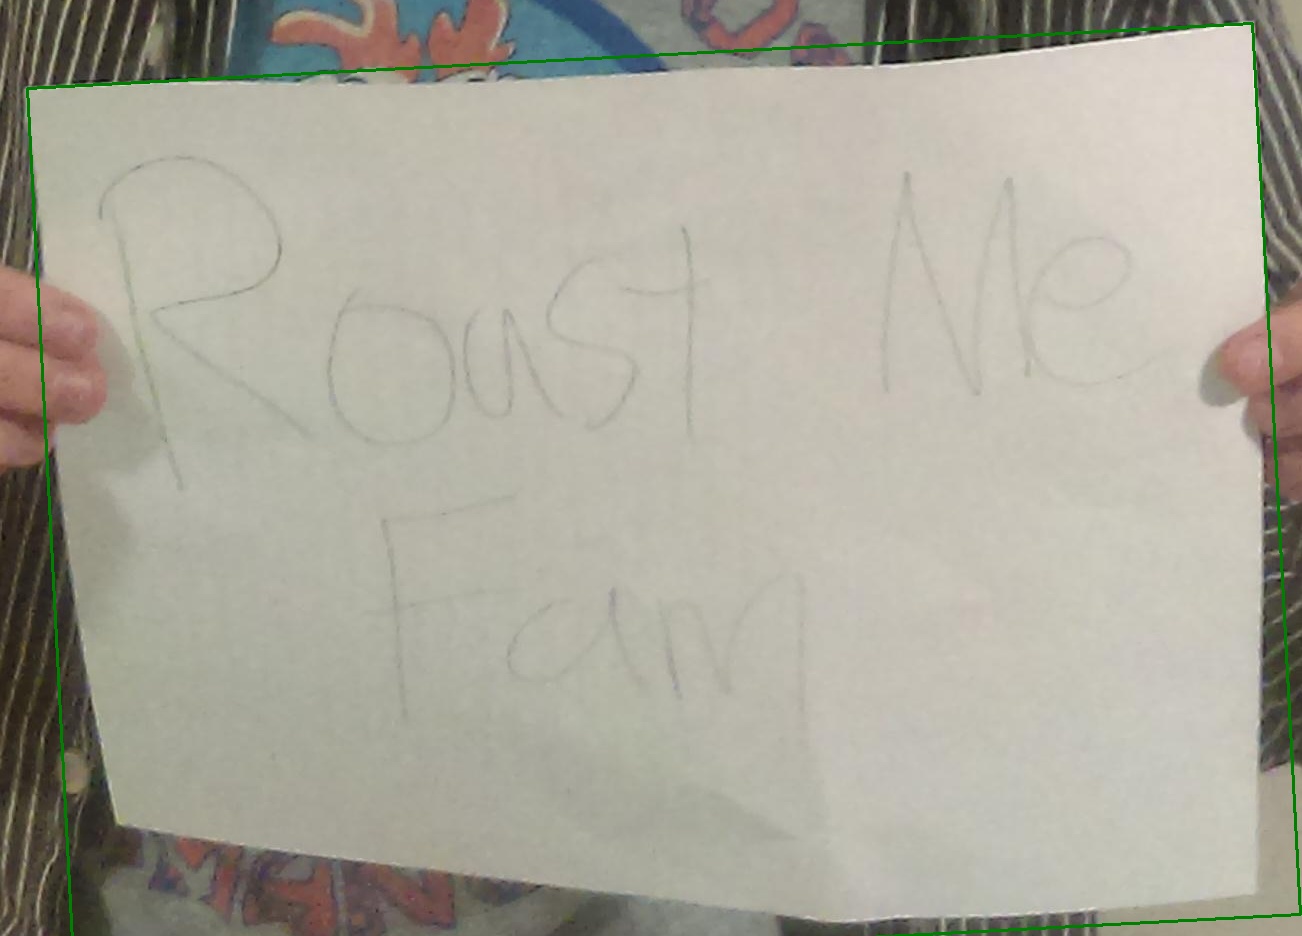 Roast Me
Fam